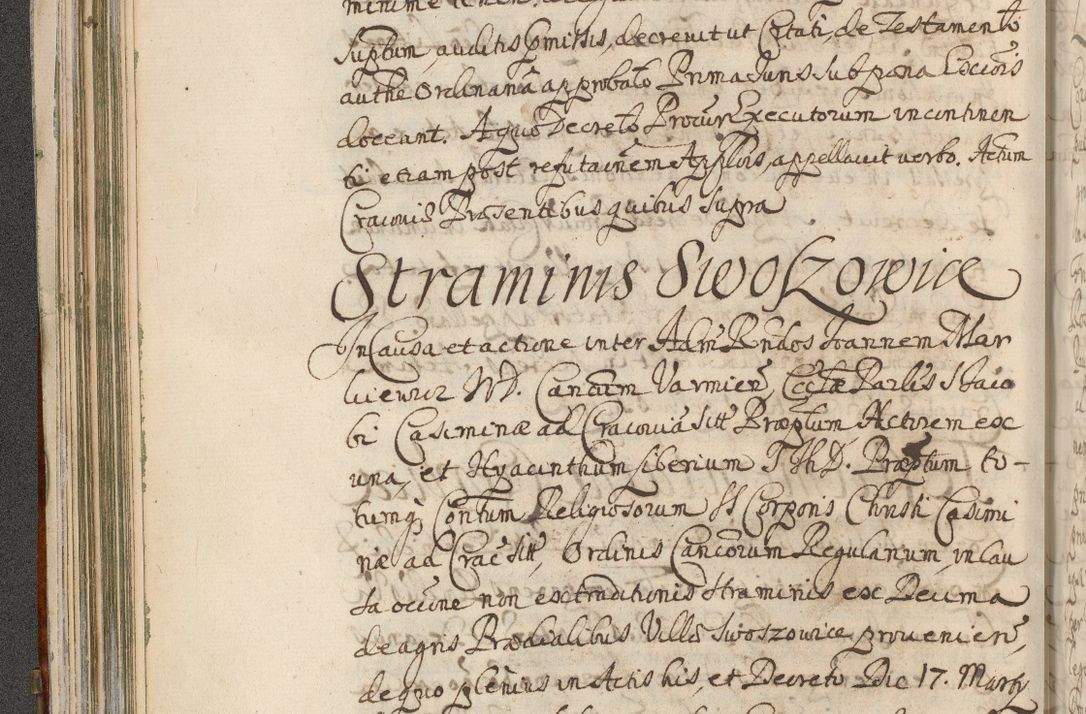 suptum, auditis pmissis, decrevit ut Citati, de Testamento
authe Ordinaria approbato Prima Juris sub pœna Excōis
doceant. A quo Decreto Procur Executorum incontinen
ti etiam post refutaōnem Applōis, appellavit verbo. Actum
Cracoviæ Præsentibus quibus supra
Straminis Swoszowice
In Causa et actione inter Adm Rndos Joannem Mar
kiewicz N D. Canōum Varmien, Ecclæ Parlis S Jaco
bi Casimiriæ ad Cracoviā sitt Præptum Actorem ex
una, et Hyacinthum Liberium S Th D. Præptum to-
tumq, Contum Religiosorum SS Corporis Christi Casimi
riæ ad Crac sitt, Ordinis Canōorum Regularium, in cau
sa occōne non extraditionis straminis ex Decima
de agris Prædialibus Villæ Swoszowice provenien,
de quo plenius in Actis his, et Decreto Die 17. Martÿ